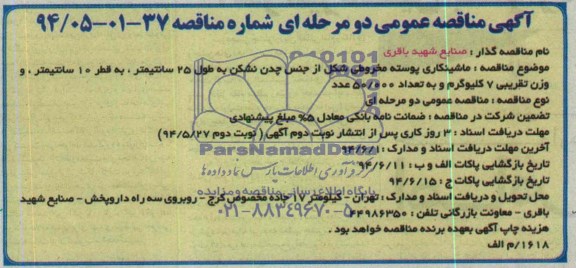 آگهی مناقصه عمومی دو مرحله ای شماره مناقصه ۳۷-۰۱-۹۴/۰۵
نام مناقصه گذار : صنایع شهید باقری
موضوع مناقصه : ماشینکاری پوسته مخروطی شکل از جنس چدن نشکن به طول ۲۵ سانتیمتر ، به قطر ۱۰ سانتیمتر ، و
وزن تقریبی ۷ کیلوگرم و به تعداد ۵۰/۰۰۰ عدد
نوع مناقصه : مناقصه عمومی دو مرحله ای
تضمین شرکت در مناقصه : ضمانت نامه بانکی معادل ۵% مبلغ پیشنهادی
مهلت دریافت اسناد : ۳ روز کاری پس از انتشار نوبت دوم آگهی ( نوبت دوم ۹۴/۵/۲۷)
آخرین مهلت دریافت اسناد و مدارک : ۹۴/۶/۱۰
تاریخ بازگشایی پاکات الف و ب : ۹۴/۶/۱۱
تاریخ بازگشایی پاکات ج : ۹۴/۶/۱۵
محل تحویل و دریافت اسناد و مدارک : تهران - کیلومتر ۱۷ جاده مخصوص کرج - روبروی سه راه داروپخش - صنایع شهید
باقری - معاونت بازرگانی تلفن : ۴۴۹۸۶۳۵۰
هزینه چاپ آگهی بعهده برنده مناقصه خواهد بود .
۱۶۱۸/م الف
ParsNamadData
مرکز فرآوری اطلاعات پارس نماد داده ها
پایگاه اطلاع رسانی مناقصه و مزایده
۰۲۱-۸۸۳۴۹۶۷۰-۵